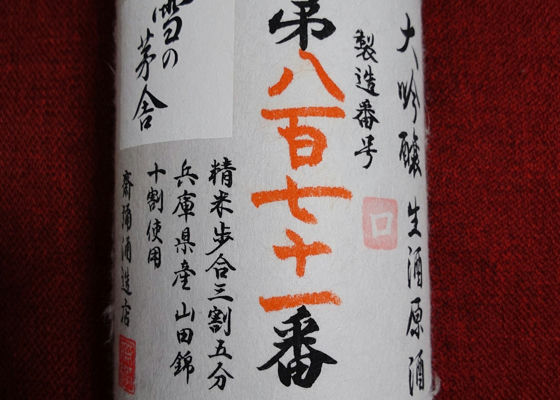 大吟醸 生酒原酒
製造番号
第八百七十一番
精米歩合三割五分
兵庫県産 山田錦
十割使用
雪の茅舎
齋彌酒造店